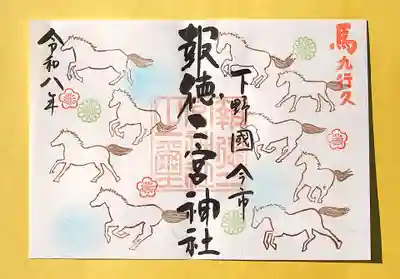 馬九行久
下野國今市
報徳二宮神社
令和八年